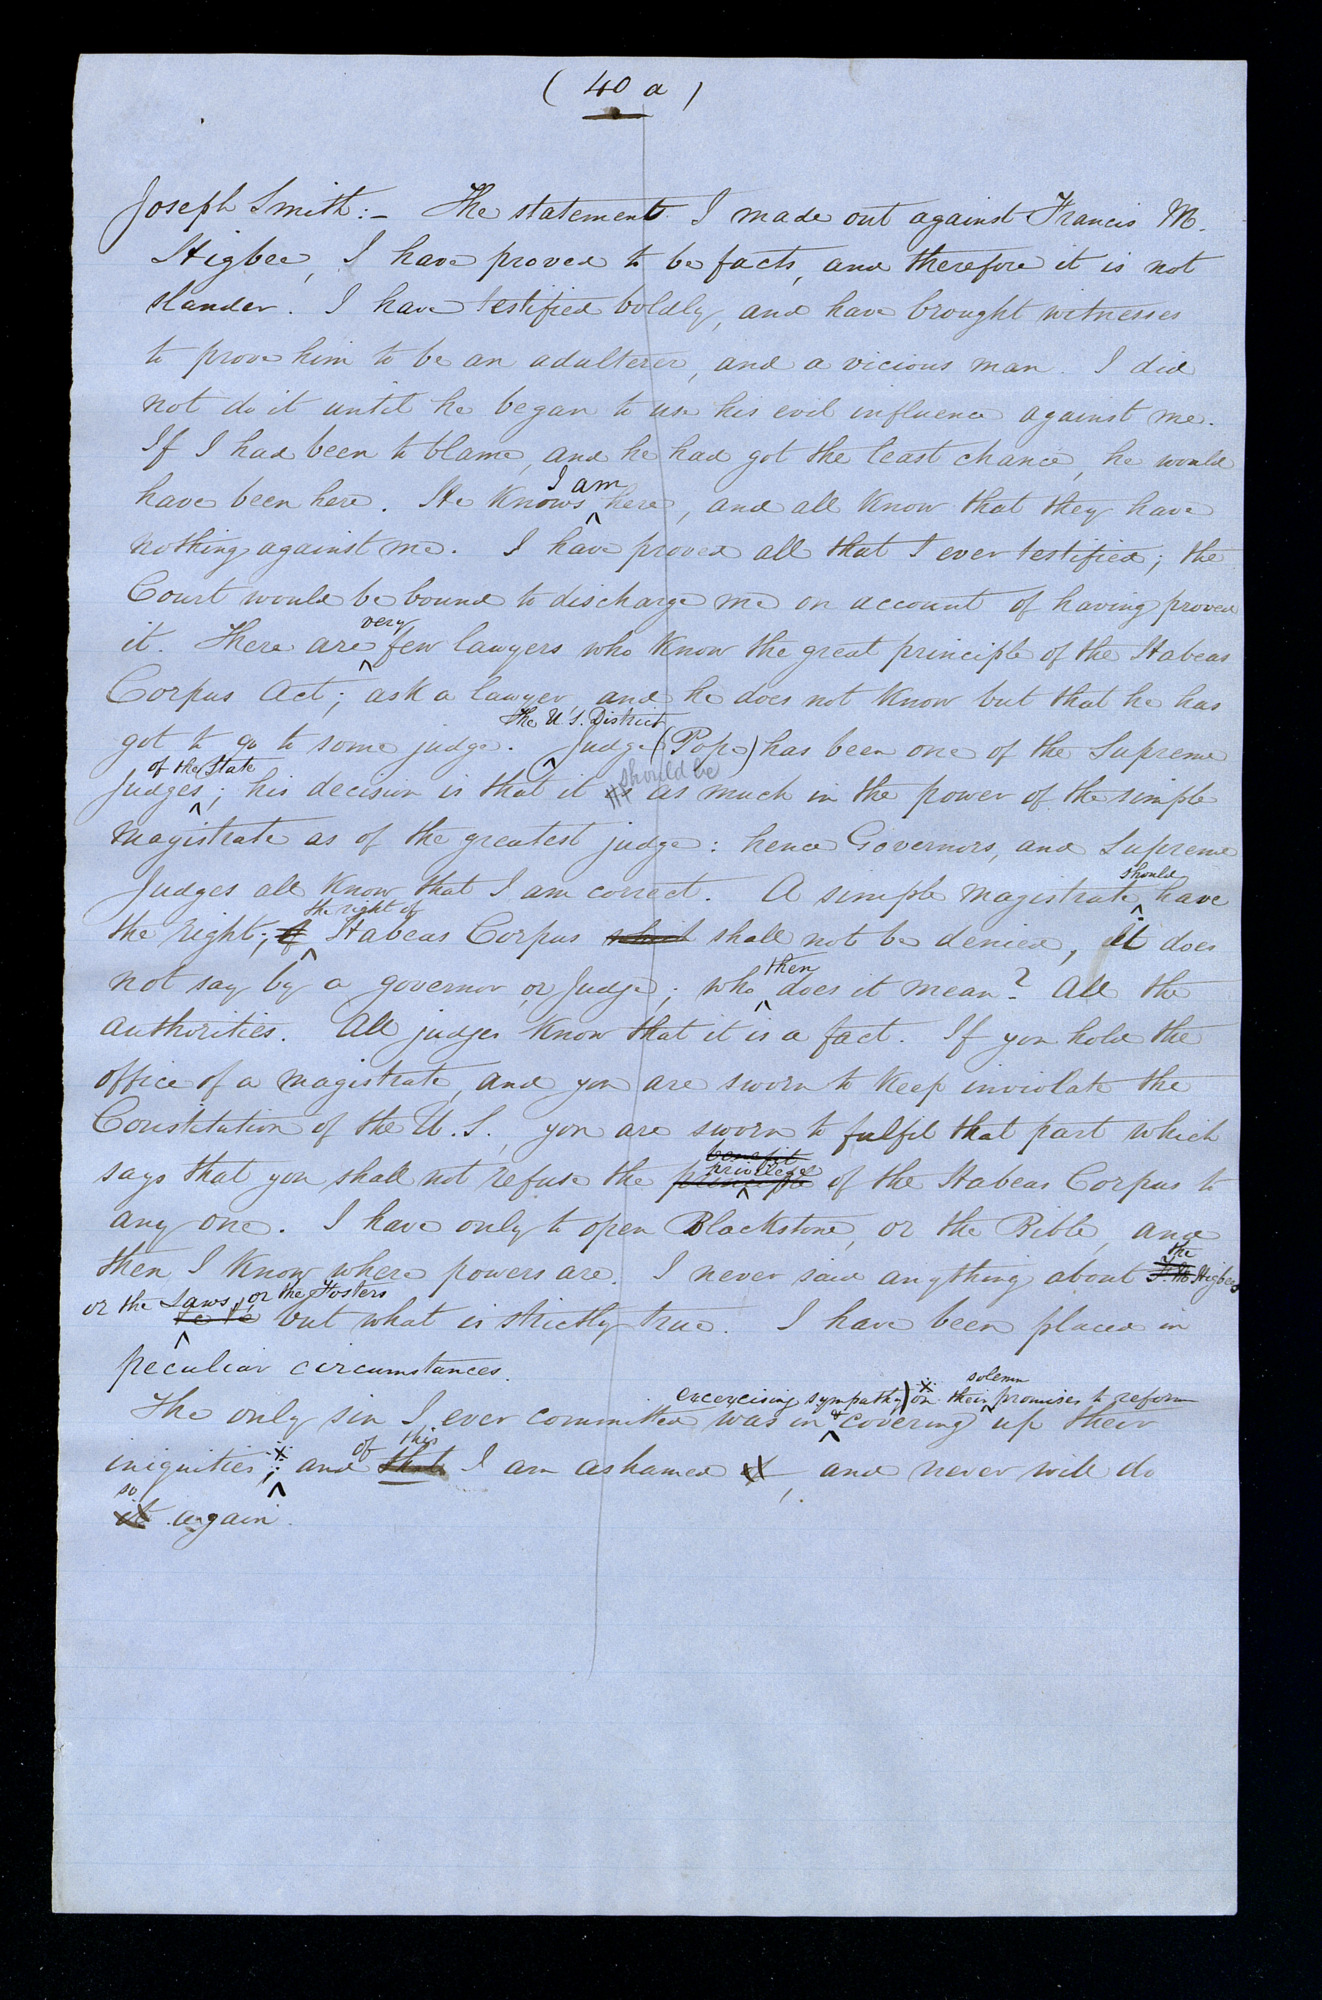 ( 40 a )
Joseph Smith:— The statements I made out against Francis M.
Higbee, I have proved to be facts, and therefore it is not
slander. I have testified boldly, and have brought witnesses
to prove him to be an adulterer, and a vicious man. I did
not do it until he began to use his evil influence against me.
If I had been to blame, and he had got the least chance, he would
I am
have been here. He knows ^ here, and all know that they have
nothing against me. I have proved all that I ever testified; the
Court would be bound to discharge me on account of having proved
very
it. There are ^ few lawyers who know the great principle of the Habeas
Corpus Act; ask a lawyer and he does not know but that he has
the U.S. District
got to go to some judge. ^ Judge (Pope) has been one of the Supreme
of the State should be
Judges ^; his decision is that it as much in the power of the simple
magistrate as of the greatest judge: hence Governors, and Supreme
should
Judges all know that I am correct. A simple magistrate ^ have
the right of
the right; of ^ Habeas Corpus which shall not be denied, It does
then
not say by a governor or Judge; who ^ does it mean? All the
authorities. All judges know that it is a fact. If you hold the
office of a magistrate, and you are sworn to keep inviolate the
Constitution of the U.S., you are sworn to fulfil that part which
benefit
privilege
says that you shall not refuse the principle ^ of the Habeas Corpus to
any one. I have only to open Blackstone, or the Bible, and
the
then I know where powers are. I never said anything about F. M. Higbees
or the Laws, or the Fosters
^ but what is strictly true. I have been placed in
peculiar circumstances.
excercising sympathy) on their solemn promises to reform
The only sin I ever committed was in & ^ covering up their
of this
iniquities; ^ and that I am ashamed of, and never will do
so
it again.